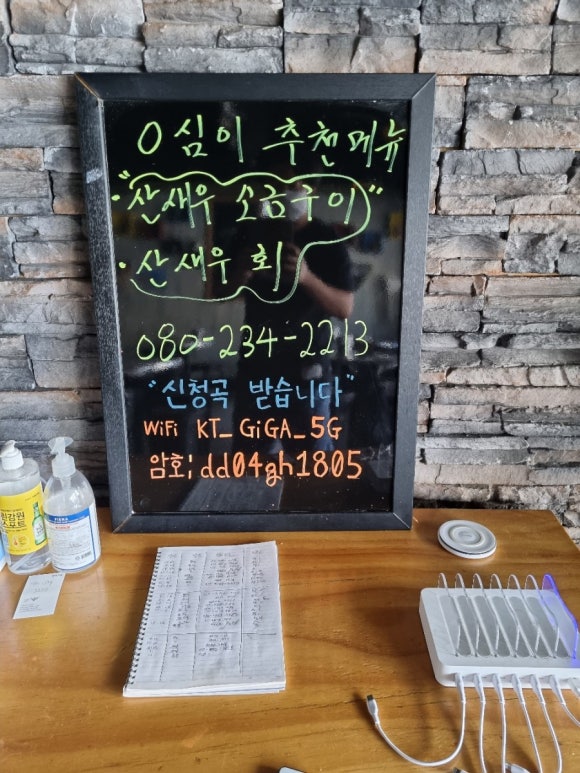 O심이 추천메뉴
· "산새우 소금구이"
· 산새우 회
080-234-2213
"신청곡 받습니다"
WiFi KT_GiGA_5G
암호; dd04gh1805